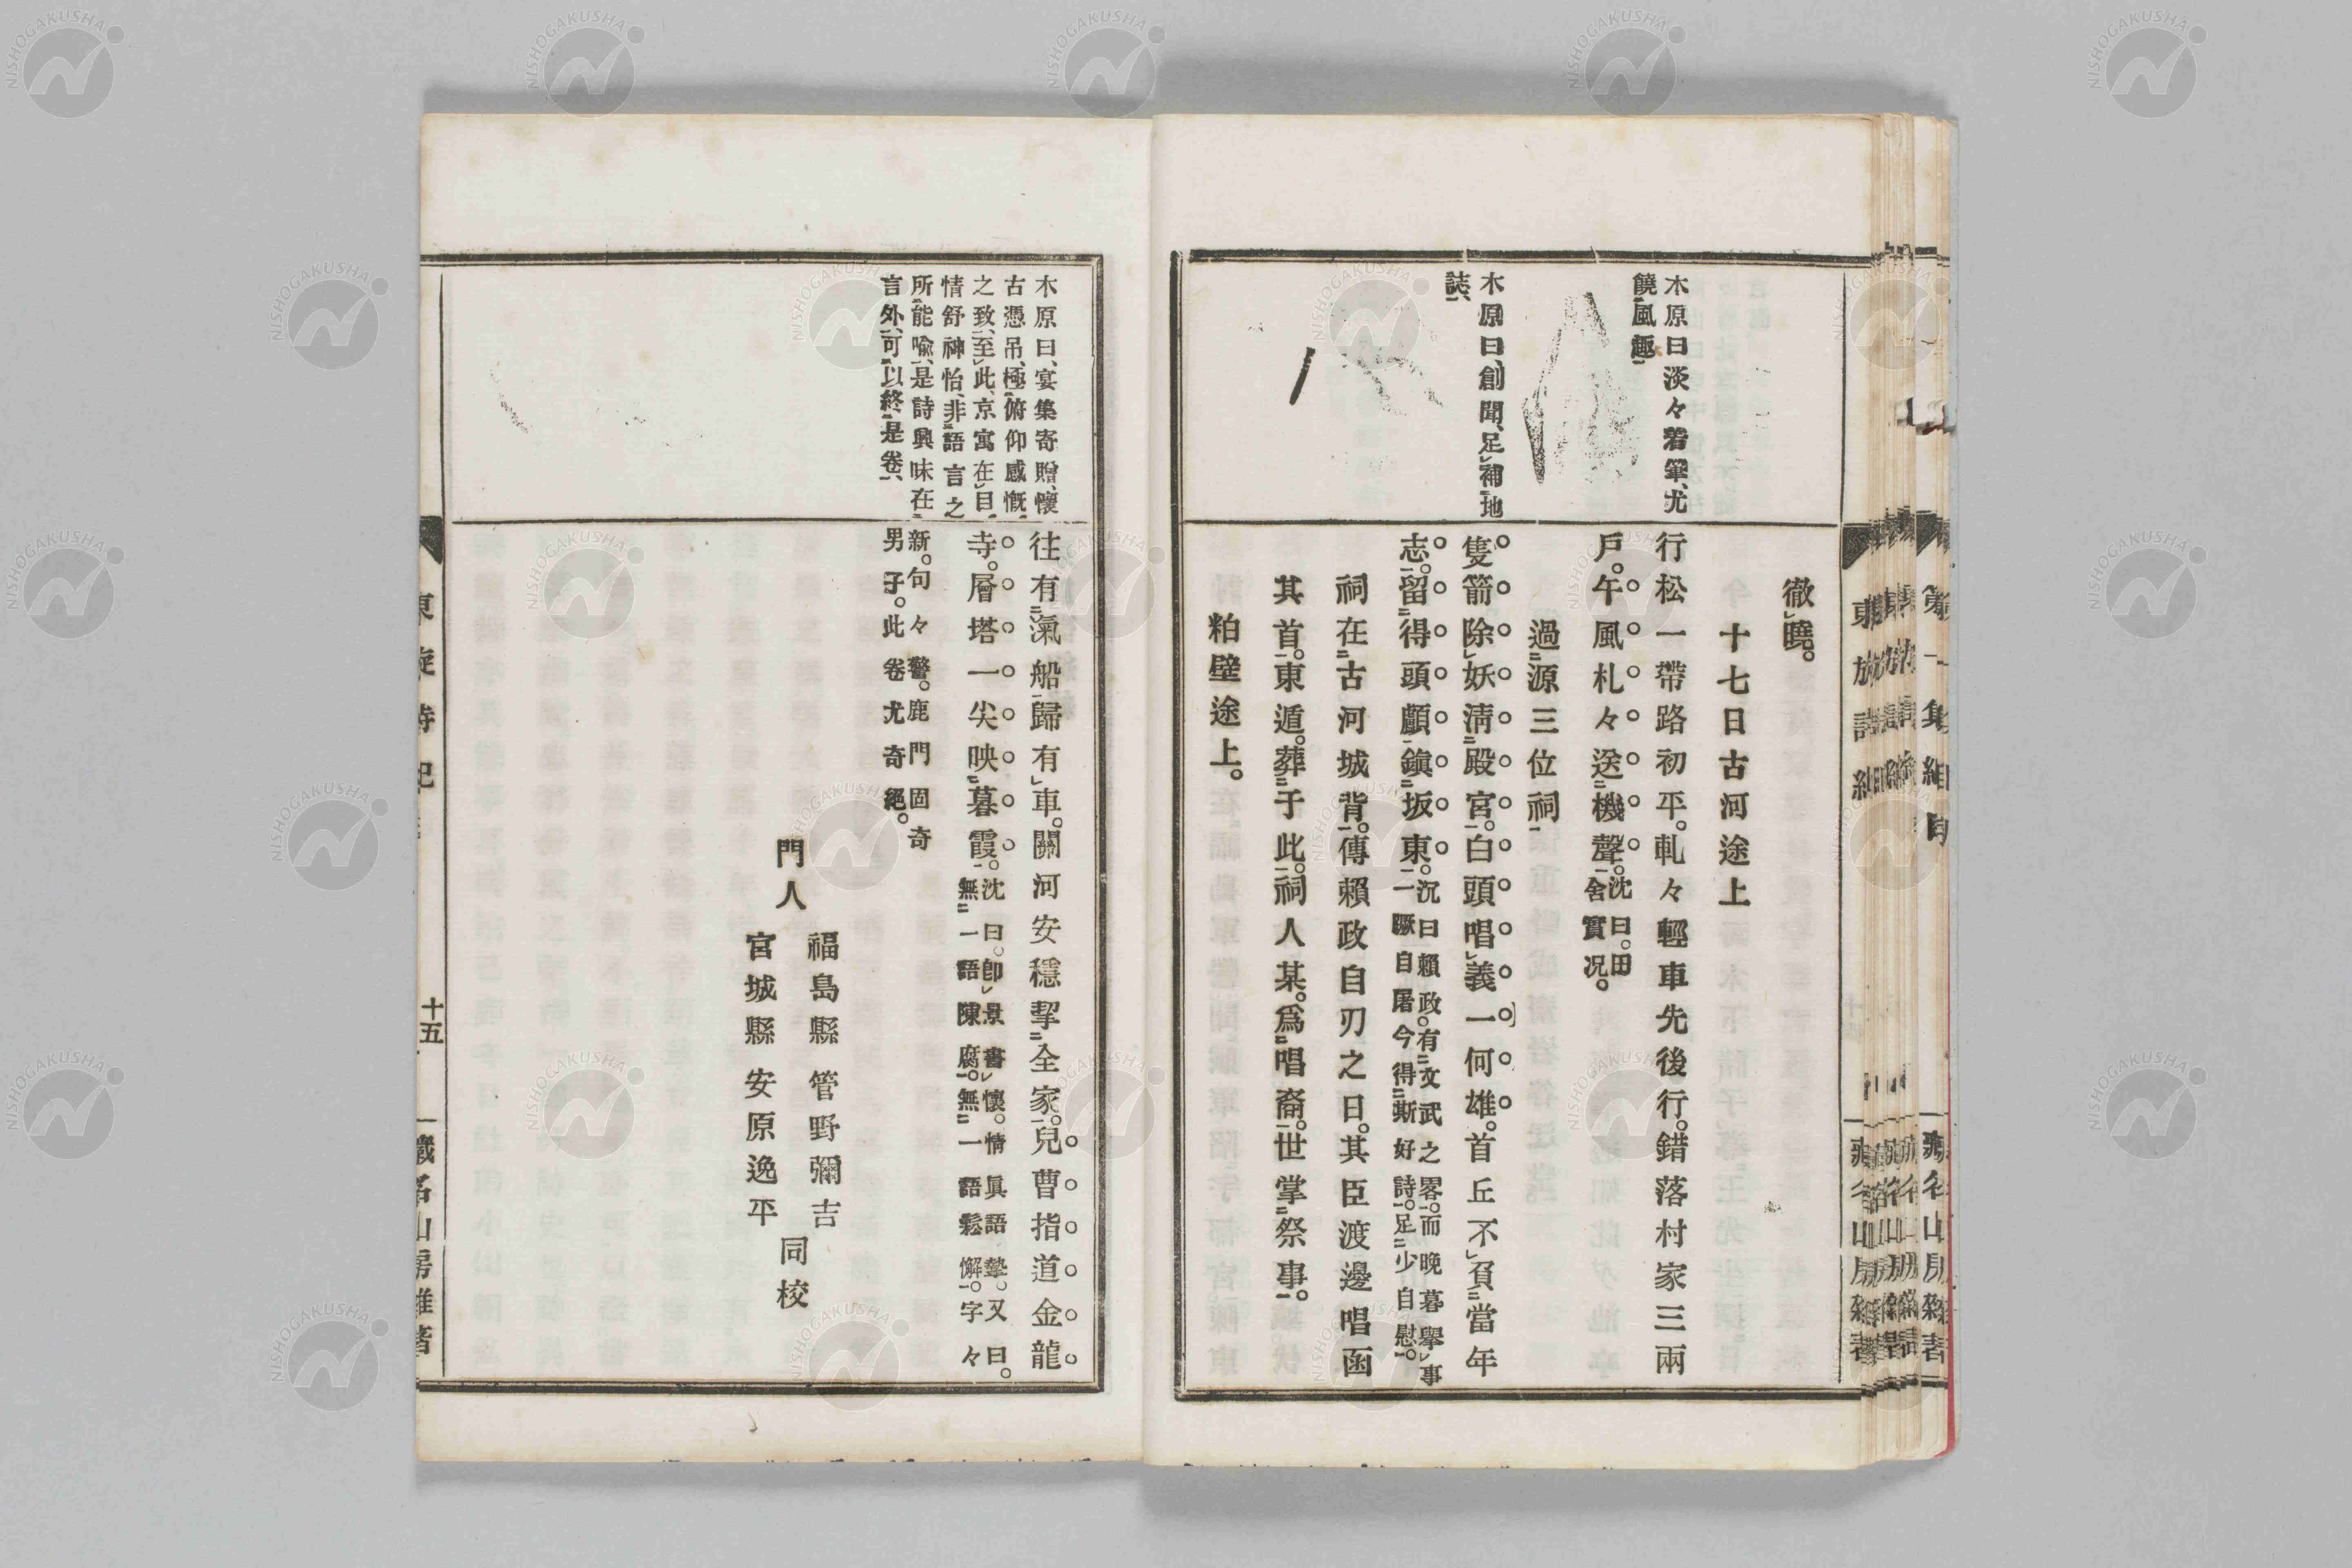 木原曰、淡々着筆、尤
饒風趣
木原曰、創聞、足補地
誌、
徹曉。
十七日古河途上
行松一帶路初平。軋々輕車先後行。錯落村家三兩
戸。午風札々送機聲。沈曰。田
舍實況。
過源三位祠
隻箭除妖淸殿宮。白頭唱義一何雄。首丘不負當年
志。留得頭顱鎭坂東。沉曰賴政。有文武之畧。而晩暮擧事
一蹶自屠今得斯好詩。足少自慰。
祠在古河城背。傳賴政自刃之日。其臣渡邊唱函
其首。東遁。葬于此。祠人某。爲唱裔。世掌祭事。
粕壁途上。
木原曰、宴集寄贈、懷
古憑吊、極俯仰感慨
之致、至此、京寓在目
情舒神怡、非語言之
所能喩、是詩興味在
言外、可以終是卷、
往有滊船歸有車。關河安穩挈全家。兒曹指道金龍
寺。層塔一尖映暮霞。沈曰。卽景書懷。情眞語摯。又曰。
無一語陳腐。無一語鬆懈。字々
新。句々警。鹿門固奇
男子。此卷尤奇絕。
門人
福島縣 管野彌吉
宮城縣 安原逸平
同校
十五